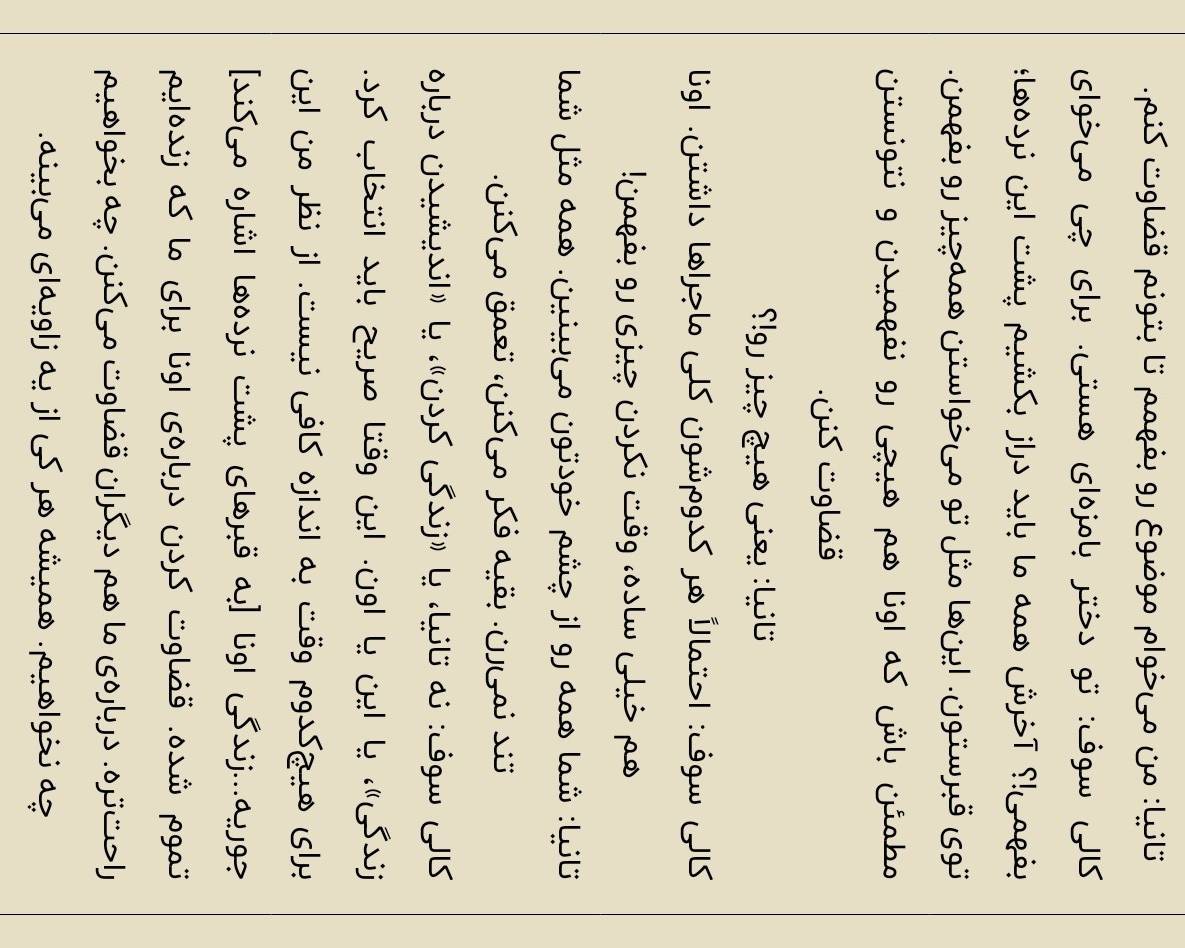 تانیا: من می‌خوام موضوع رو بفهمم تا بتونم قضاوت کنم.
کالی سوف: تو دختر بامزه‌ای هستی. برای چی می‌خوای
بفهمی!؟ آخرش همه ما باید دراز بکشیم پشت این نرده‌ها؛
توی قبرستون. این‌ها مثل تو می‌خواستن همه‌چیز رو بفهمن.
مطمئن باش که اونا هم هیچی رو نفهمیدن و نتونستن
قضاوت کنن.
تانیا: یعنی هیچ چیز رو!؟
کالی سوف: احتمالاً هر کدوم‌شون کلی ماجراها داشتن. اونا
هم خیلی ساده، وقت نکردن چیزی رو بفهمن!
تانیا: شما همه رو از چشم خودتون می‌بینین. همه مثل شما
تند نمی‌رن. بقیه فکر می‌کنن، تعمق می‌کنن.
کالی سوف: نه تانیا، یا «زندگی کردن»، یا «اندیشیدن درباره
زندگی»، یا این یا اون. این وقتا صریح باید انتخاب کرد.
برای هیچ‌کدوم وقت به اندازه کافی نیست. از نظر من این
جوریه...زندگی اونا [به قبرهای پشت نرده‌ها اشاره می‌کند]
تموم شده. قضاوت کردن درباره‌ی اونا برای ما که زنده‌ایم
راحت‌تره. درباره‌ی ما هم دیگران قضاوت می‌کنن. چه بخواهیم
چه نخواهیم. همیشه هر کی از یه زاویه‌ای می‌بینه.